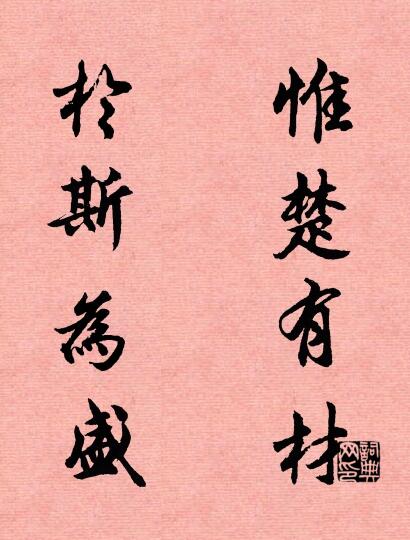 惟楚有材
於斯為盛
詞典网印